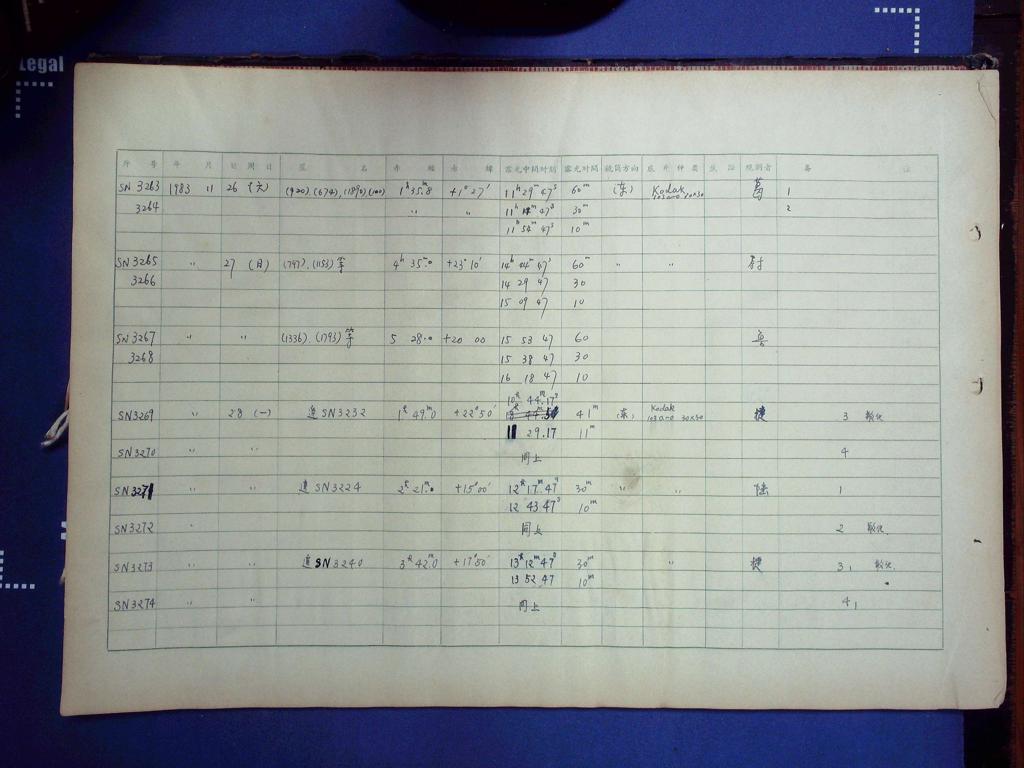 Legal
序 号 年 月 日 周 日 星 名 赤 经 赤 纬 露光中间时刻 露光时间 镜筒方向 底 片 种 类 观测者 备 注
SN 3263 1983 11 26 (六) (920),(674),(1890),(100) 1h 35m.8 +1°27′ 11h 29m 47s 60m (东) Kodak 103a-0 30×30 葛 1
3264 〃 〃 11h 47s 30m 2
11h 54m 47s 10m
SN3265 〃 27 (日) (797),(1153)等 4h 35m.0 +23°10′ 14h 44m 47s 60m 〃 〃
3266 14 29 47 30
15 09 47 10
SN3267 〃 〃 (1336),(1793)等 5 28.0 +20 00 15 53 47 60
3268 15 38 47 30
16 18 47 10
10h 44m.17s
SN3269 〃 28 (一) 追SN3232 1h 49m.0 +22°50′ 41m (东) Kodak 103a-0 30×30 捷 3
11 29.17 11m
SN3270 〃 〃 同上 4
SN3271 〃 〃 追SN3224 2h 21m.0 +15°00′ 12h 17m.47s 30m 〃 〃 陆 1
12 43 47s 10m
SN3272 同上 2
SN3273 〃 〃 追SN3240 3h 42m.0 +17°50′ 13h 12m 47s 30m 〃 捷 3
13 52.47 10m
SN3274 〃 同上 4